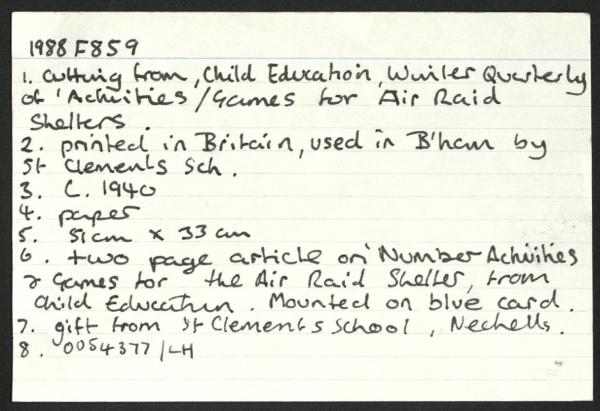 1988 F859
1. cutting from, Child Education, Winter Quarterly
of 'Activities/Games for Air Raid
Shelters.
2. printed in Britain, used in B'ham by
St Clements Sch.
3. C. 1940
4. paper
5. 51cm x 33cm
6. two page article on 'Number Activities
& Games for the Air Raid Shelter, from
Child Education. Mounted on blue card.
7. gift from St Clements School, Nechells.
8. 0054377/LH